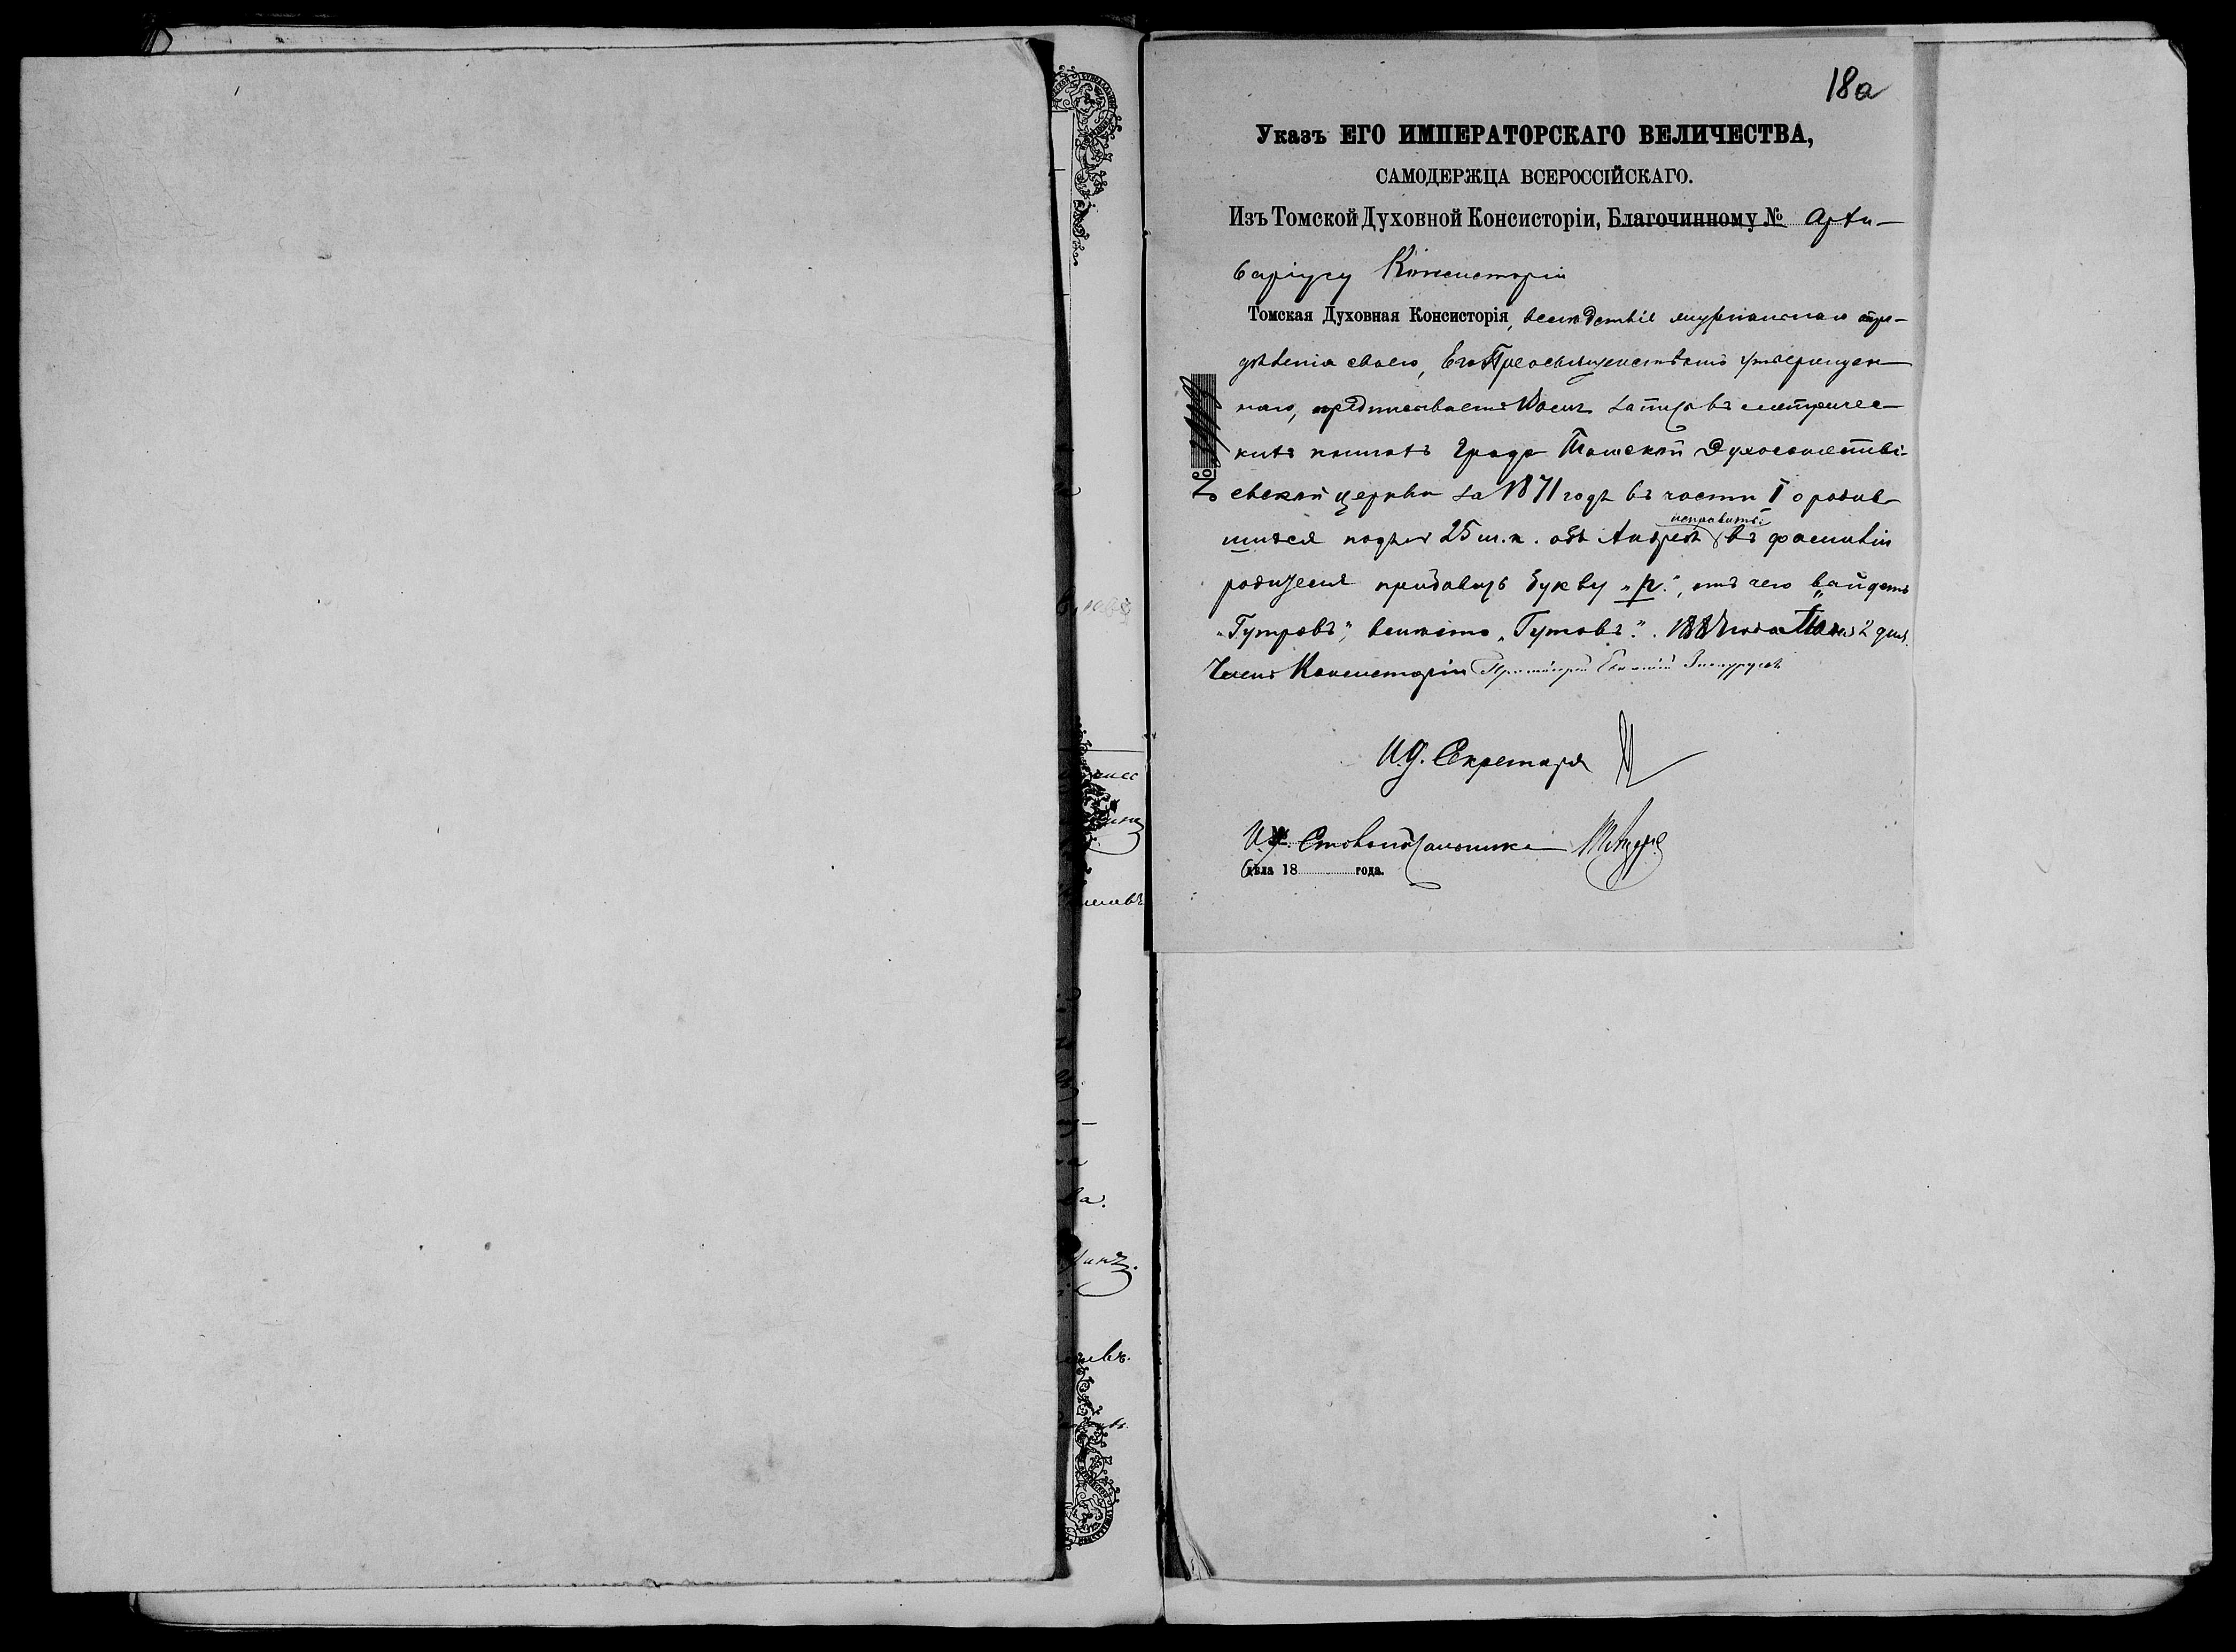 18а
Указъ ЕГО ИМПЕРАТОРСКАГО ВЕЛИЧЕСТВА,
САМОДЕРЖЦА ВСЕРОССІЙСКАГО.
Изъ Томской Духовной Консисторіи, Благочинному № Архи-
варіусу Консисторіи
Томская Духовная Консисторія, вслѣдствіе журнальнаго опре-
дѣленія своего, Его Преосвященствомъ утвержден-
наго, предписываетъ Вамъ запись въ метричес-
кихъ книгахъ Градо Томской Духосошествi-
евской церкви за 1871 годъ въ части I о родив-
шихся подъ № 25 м. п. объ Андреѣ исправить: въ фамиліи
родителя прибавить букву „р.", отъ чего выйдетъ
„Гутровъ", вмѣсто „Гутовъ". 1887 года 2 дня.
Членъ Консисторіи Протоіерей
И.д. Секретаря
И.д. Столоначальника
дѣла 18 года.
№